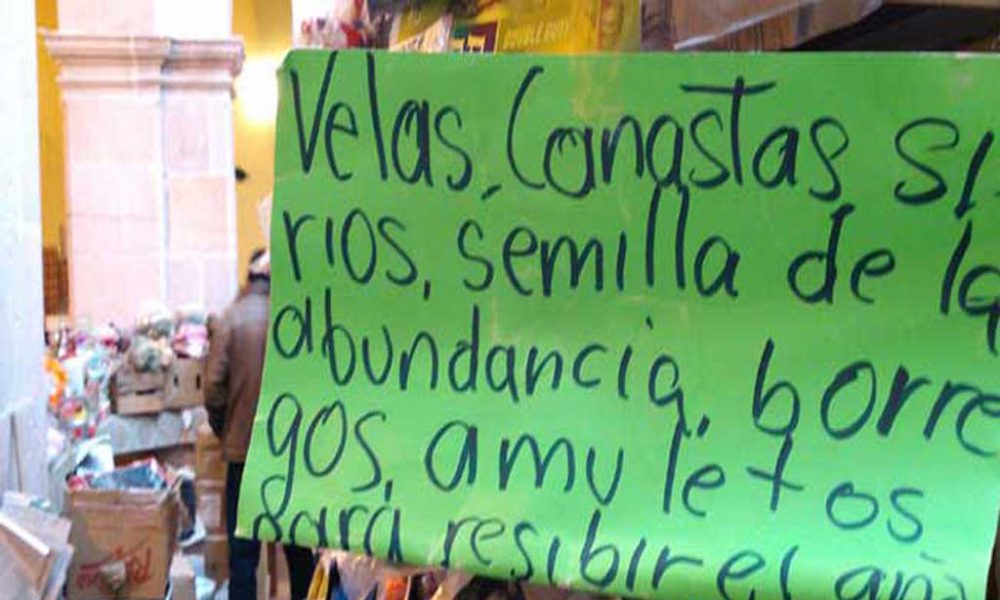 DOUBLE DUTY
Velas, Canastas, si
rios, semilla de la
abundancia, borre
gos, amuletos
para resibir el año